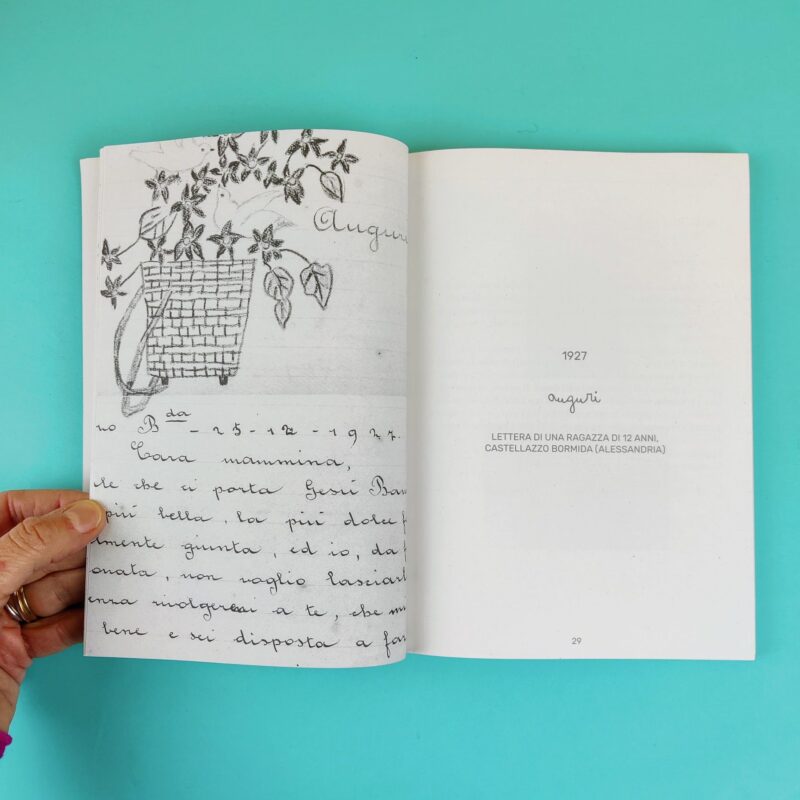 Auguri
no Bda - 25 - 12 - 1927.
Cara mammina,
le che ci porta Gesù Bam
più bella, la più dolce f
lmente giunta, ed io, da f
onata, non voglio lasciarl
enza rivolgermi a te, che m
bene e sei disposta a far
1927
auguri
LETTERA DI UNA RAGAZZA DI 12 ANNI,
CASTELLAZZO BORMIDA (ALESSANDRIA)
29